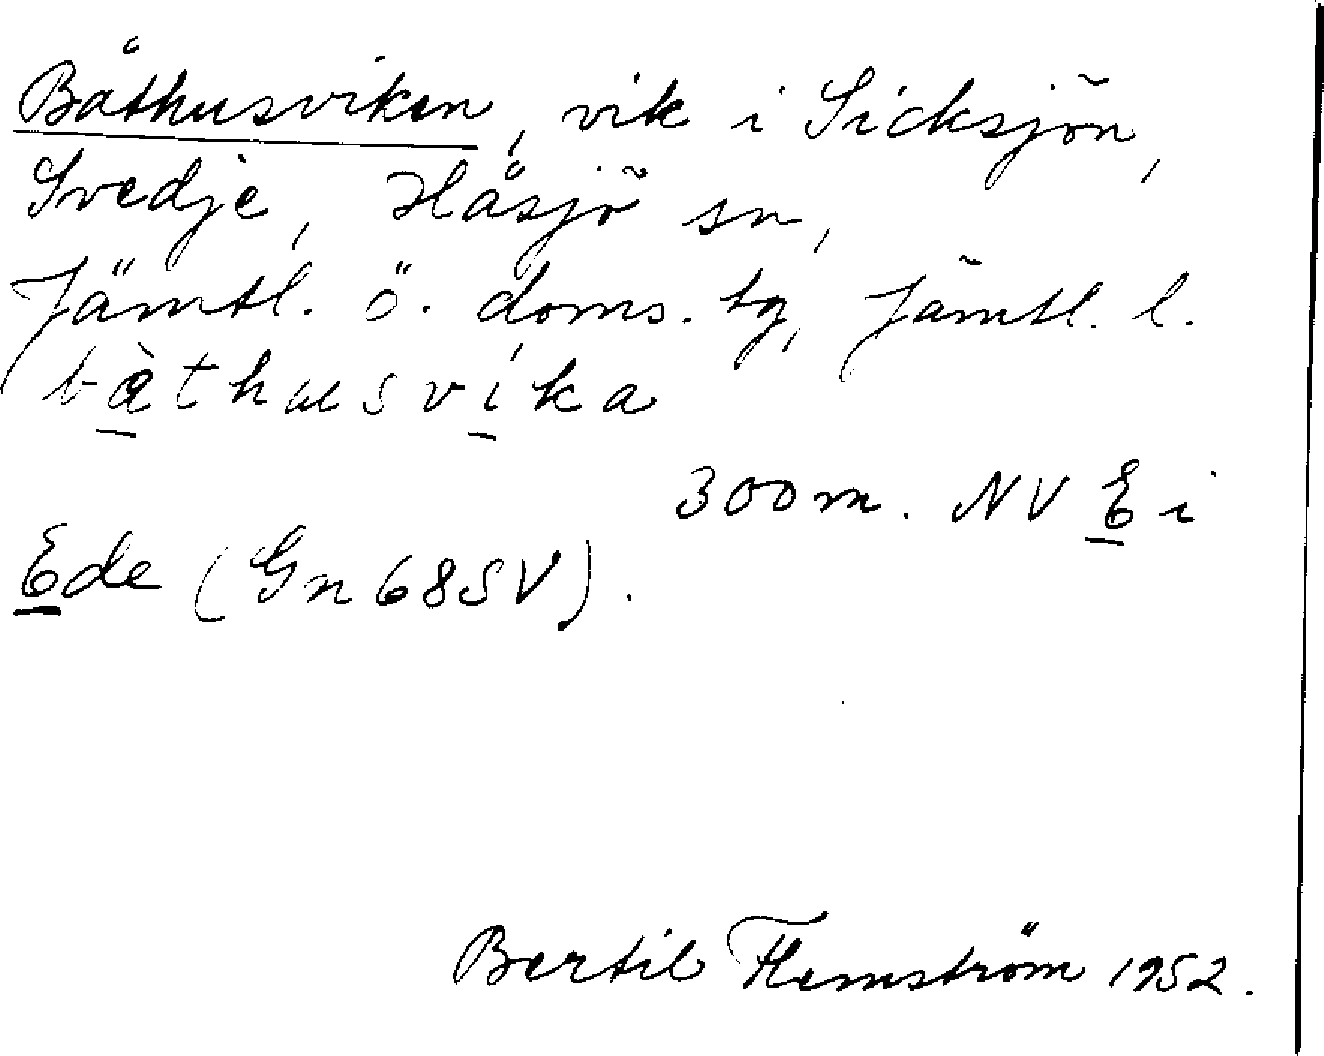 Båthusviken, vik i Sicksjön,
Svedje, Håsjö sn,
Jämtl. ö. doms. tg, Jämtl. l.
bàthusvíka
300 m. NV E i
Ede (Gn 68SV).
Bertil Flemström 1952.